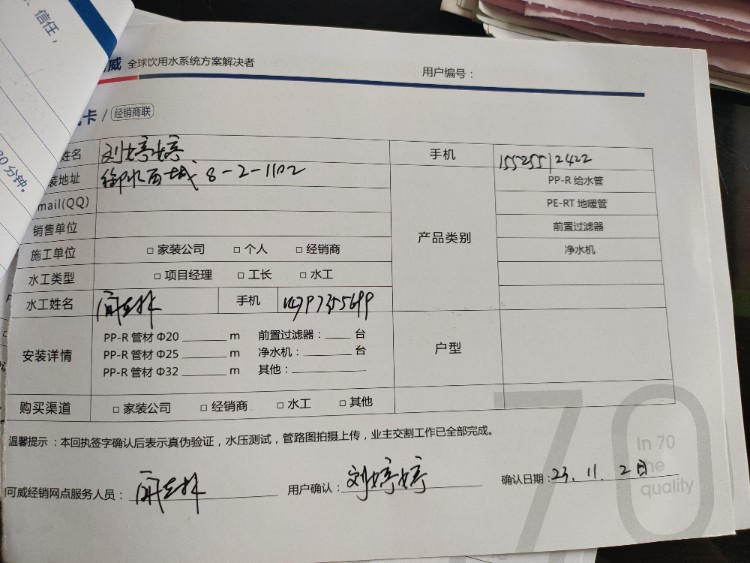 信任，
30分钟。
威 全球饮用水系统方案解决者
用户编号：
卡 / 经销商联
姓名 刘婷婷 手机 15525512422
装地址 御水西城 8-2-1102 产品类别 PP-R 给水管
mail(QQ) PE-RT 地暖管
销售单位 前置过滤器
施工单位 □ 家装公司 □ 个人 □ 经销商 净水机
水工类型 □ 项目经理 □ 工长 □ 水工
水工姓名 手机
安装详情 PP-R 管材 Φ20 ______ m 前置过滤器：____ 台 户型
PP-R 管材 Φ25 ______ m 净水机：____ 台
PP-R 管材 Φ32 ______ m 其他：______
购买渠道 □ 家装公司 □ 经销商 □ 水工 □ 其他
温馨提示：本回执签字确认后表示真伪验证，水压测试，管路图拍摄上传，业主交割工作已全部完成。
70
In 70
the
quality
可威经销网点服务人员： 用户确认：刘婷婷 确认日期：23.11.2日